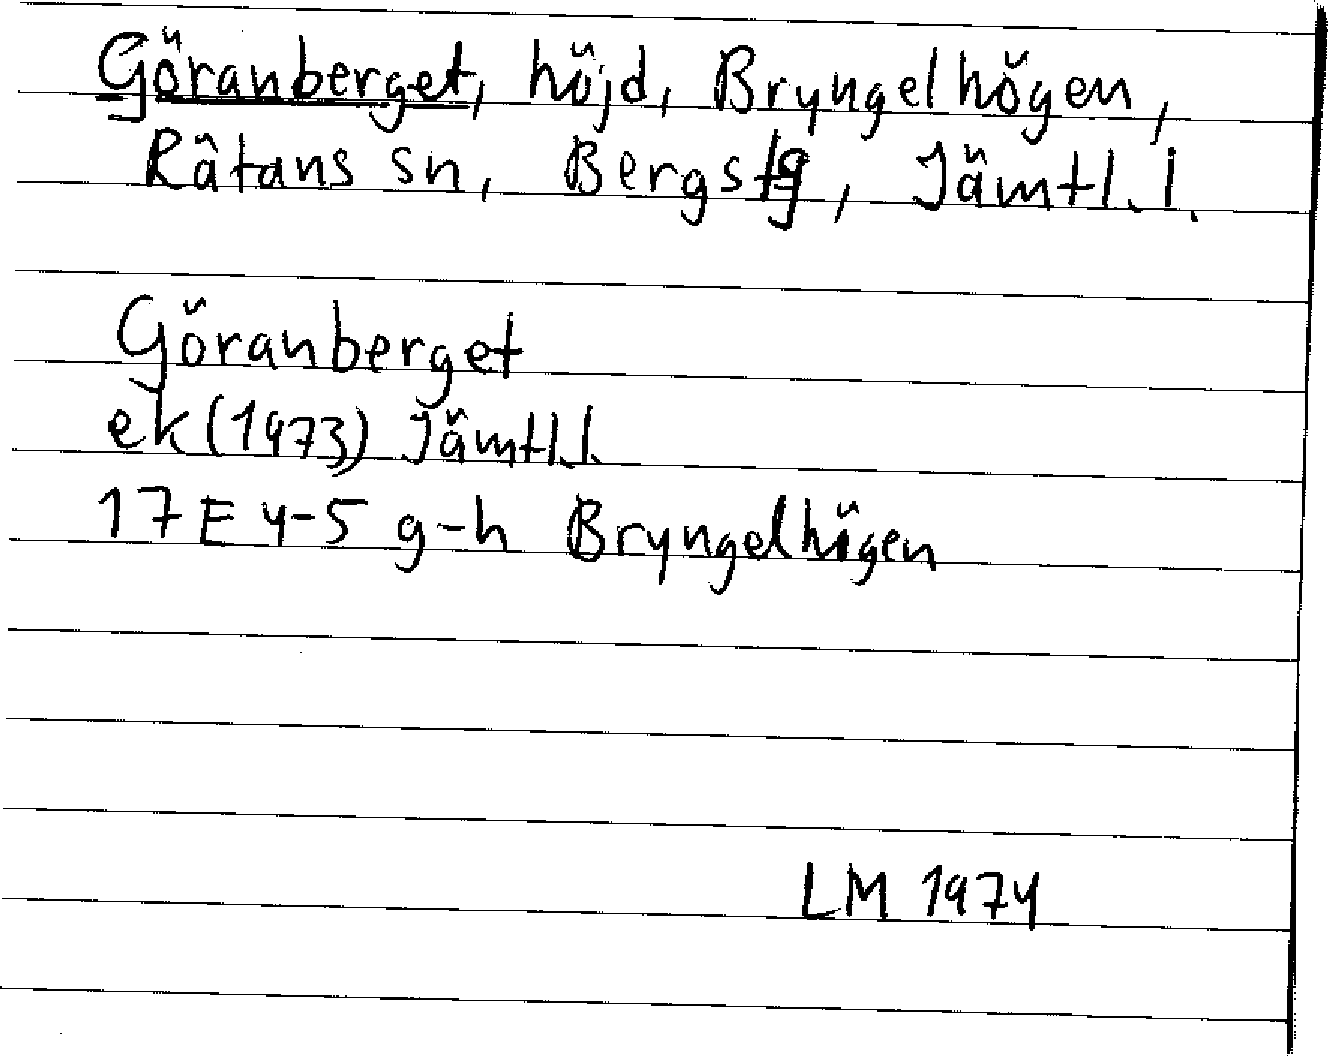 Göranberget, höjd, Bryngelhögen,
Rätans sn, Bergs tg, Jämtl. l.
Göranberget
ek (1973) Jämtl.l.
17E 4-5 g-h Bryngelhögen
LM 1974